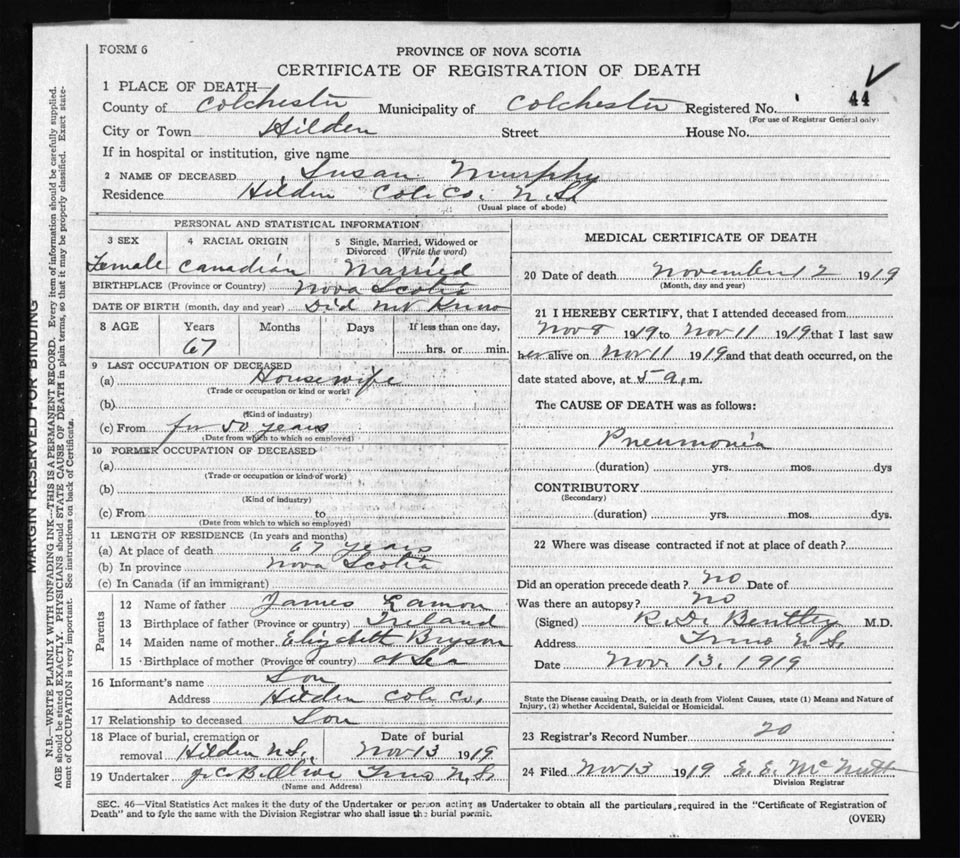 FORM 6
PROVINCE OF NOVA SCOTIA
CERTIFICATE OF REGISTRATION OF DEATH
1 PLACE OF DEATH—
County of Colchester Municipality of Colchester Registered No. 44
(For use of Registrar General only)
City or Town Hilden Street House No.
If in hospital or institution, give name
2 NAME OF DECEASED Susan Murphy
Residence Hilden Col. Co. N.S.
(Usual place of abode)
PERSONAL AND STATISTICAL INFORMATION
3 SEX 4 RACIAL ORIGIN 5 Single, Married, Widowed or Divorced (Write the word)
Female Canadian Married
BIRTHPLACE (Province or Country) Nova Scotia
DATE OF BIRTH (month, day and year) Did not Know
8 AGE Years Months Days If less than one day,
67 hrs. or min.
9 LAST OCCUPATION OF DECEASED
(a) Housewife
(Trade or occupation or kind or work)
(b)
(Kind of industry)
(c) From for 50 years
(Date from which to which so employed)
10 FORMER OCCUPATION OF DECEASED
(a)
(Trade or occupation or kind of work)
(b)
(Kind of industry)
(c) From to
(Date from which to which so employed)
11 LENGTH OF RESIDENCE (In years and months)
(a) At place of death 67 years
(b) In province Nova Scotia
(c) In Canada (if an immigrant)
Parents
12 Name of father James Lamon
13 Birthplace of father (Province or country) Ireland
14 Maiden name of mother Elizabeth Bryson
15 Birthplace of mother (Province or country) at Sea
16 Informant's name Son
Address Hilden Col. Co.
17 Relationship to deceased Son
18 Place of burial, cremation or removal Hilden N.S. Date of burial Nov 13 1919
19 Undertaker Truro N.S.
(Name and Address)
MEDICAL CERTIFICATE OF DEATH
20 Date of death November 12 1919
(Month, day and year)
21 I HEREBY CERTIFY, that I attended deceased from
Nov 8 1919 to Nov 11 1919 that I last saw
her alive on Nov 11 1919 and that death occurred, on the
date stated above, at 5 a.m.
The CAUSE OF DEATH was as follows:
Pneumonia
(duration) yrs. mos. dys
CONTRIBUTORY
(Secondary)
(duration) yrs. mos. dys.
22 Where was disease contracted if not at place of death?
Did an operation precede death? no Date of
Was there an autopsy? no
(Signed) R. D. Bentley M.D.
Address Truro N.S.
Date Nov. 13, 1919
State the Disease causing Death, or in death from Violent Causes, state (1) Means and Nature of
Injury, (2) whether Accidental, Suicidal or Homicidal.
23 Registrar's Record Number 20
24 Filed Nov 13 1919 E. E. McNutt
Division Registrar
SEC. 46—Vital Statistics Act makes it the duty of the Undertaker or person acting as Undertaker to obtain all the particulars required in the "Certificate of Registration of
Death" and to fyle the same with the Division Registrar who shall issue the burial permit.
(OVER)
MARGIN RESERVED FOR BINDING
N.B.—WRITE PLAINLY WITH UNFADING INK—THIS IS A PERMANENT RECORD. Every item of information should be carefully supplied.
AGE should be stated EXACTLY. PHYSICIANS should STATE CAUSE OF DEATH in plain terms, so that it may be properly classified. Exact state-
ment of OCCUPATION is very important. See instructions on back of Certificate.